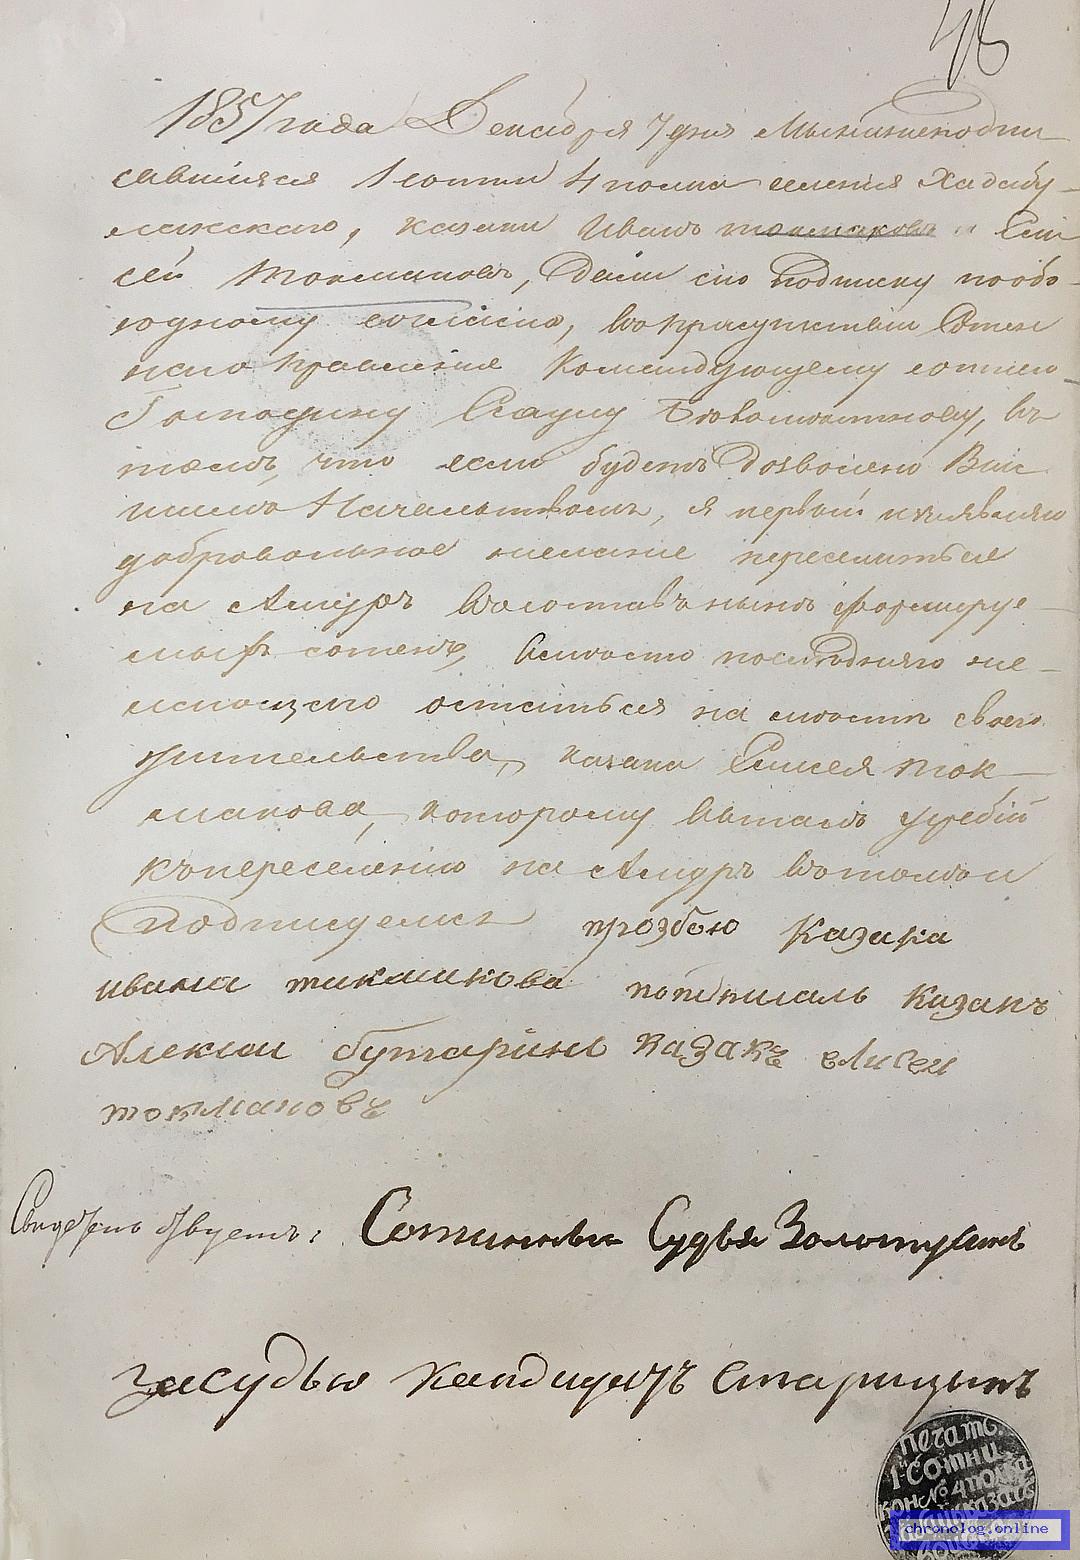 48
1857 года Декабря 7 дня Мы нижеподпи
савшіяся 1 сотни 4 полка селенія Хадабу-
лакскаго, казаки Иванъ Токмаковъ и Ели
сей Токмаковъ, дали сію подписку по обо-
юдному согласію, въ присутствіи Сотен
наго правленія Командующему сотнею
Господину Есаулу
томъ, что если будетъ дозволено Выс
шимъ Начальствомъ, я первый изъявляю
добровольное желаніе переселиться
на Амуръ въ составъ нынѣ формируе-
мыхъ сотенъ, вмѣсто послѣдняго же-
лающаго остаться на мѣстѣ своего
жительства, казака Елисея Ток-
макова, которому выпалъ жребій
къ переселенію на Амуръ въ томъ и
подписуемся прозбою Казака
ивана токмакова потписалъ Казакъ
Алексеи бутаринъ казакъ елисеи
токмаковъ
Свидетельствуетъ: Сотенный Судья Золотухинъ
за судью кандидатъ Старицынъ
Печать
1 Сотни
кон № 4 полка
chronolog.online